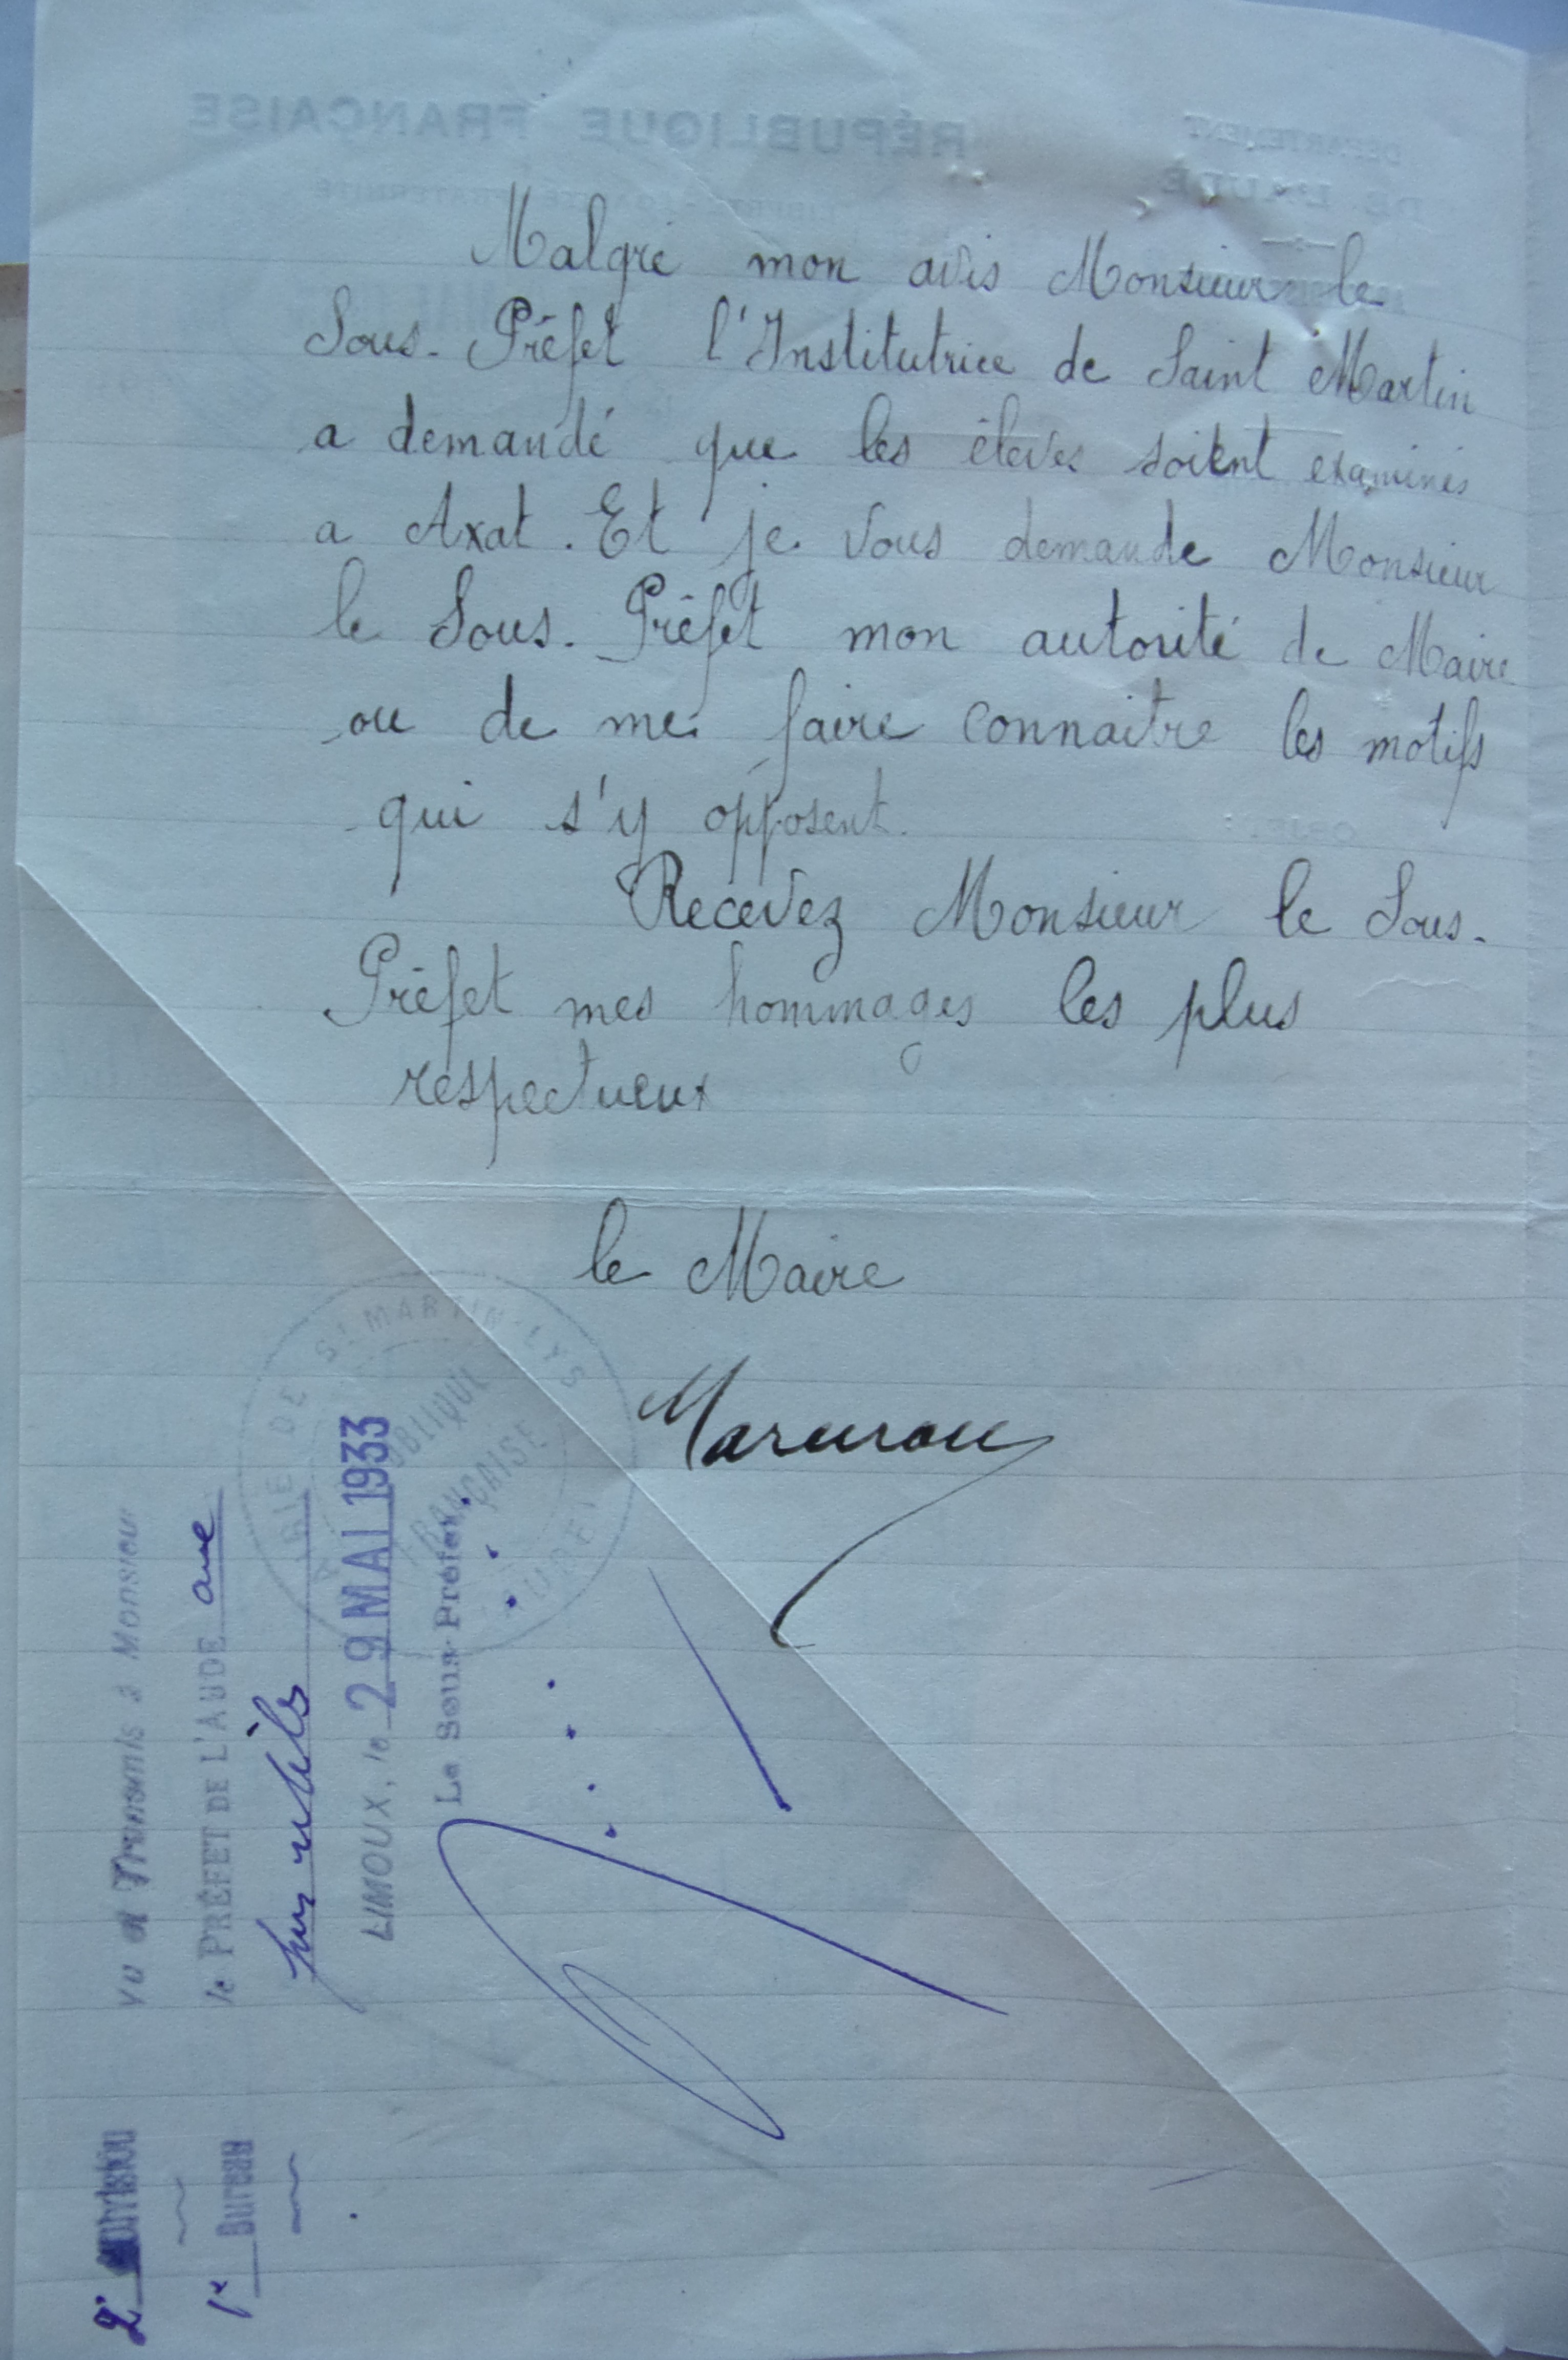 Malgré mon avis Monsieur le
Sous-Préfet l'Institutrice de Saint Martin
a demandé que les élèves soient examinés
a Axat. Et je vous demande Monsieur
le Sous-Préfet mon autorité de Maire
ou de me faire connaitre les motifs
qui s'y opposent.
Recevez Monsieur le Sous-
Préfet mes hommages les plus
respectueux
le Maire
MAIRIE DE St MARTIN-LYS
RÉPUBLIQUE
FRANÇAISE
(AUDE)
Vu et Transmis à Monsieur
le PRÉFET DE L'AUDE aux
LIMOUX, le 29 MAI 1933
Le Sous-Préfet,
2e Division
1er Bureau
RÉPUBLIQUE FRANÇAISE
LIBERTÉ-ÉGALITÉ-FRATERNITÉ
DÉPARTEMENT
DE L'AUDE